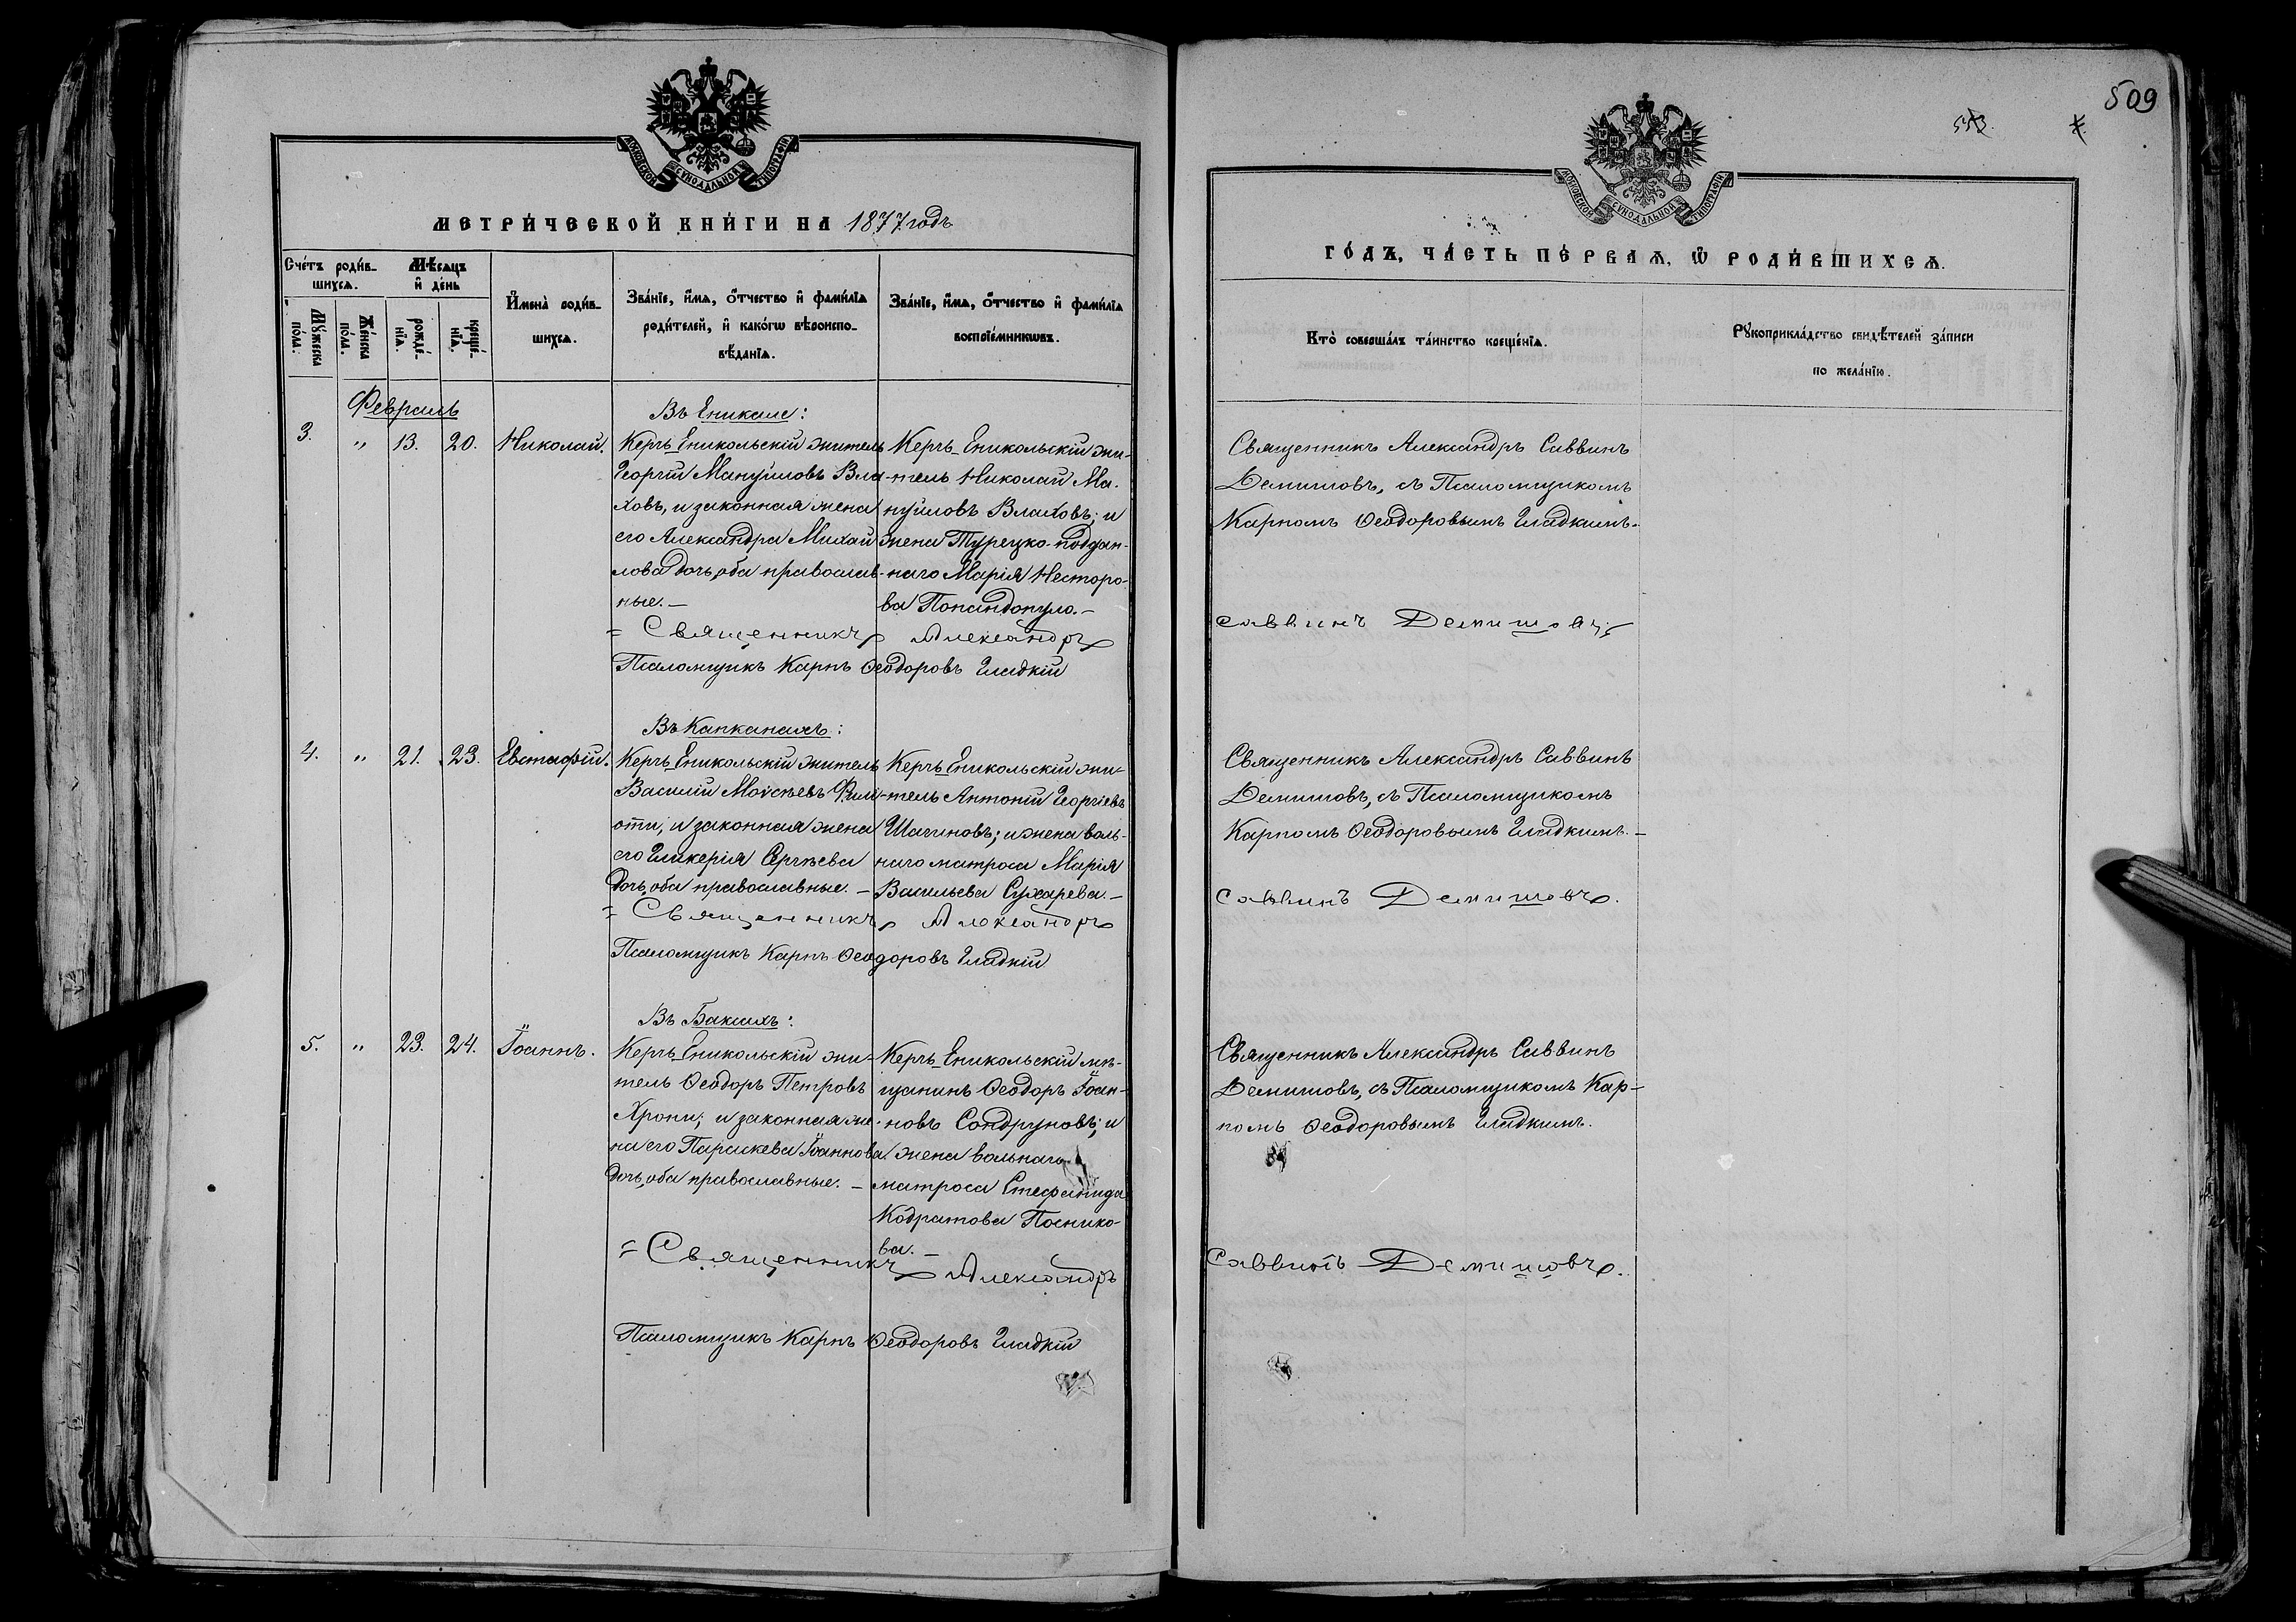 МОСКОВСКОЙ СѴНОДАЛЬНОЙ ТИПОГРАФІИ
МЕТРИ́ЧЕСКОЙ КНИ́ГИ НА 1877 годъ
Сче́тъ роди́в-
шихсѧ.
Мѣ́сѧцъ
и҆ де́нь
Мꙋ́жеска
по́ла.
Же́нска
по́ла.
рожде́-
нїѧ.
креще́-
нїѧ.
И҆мена̀ роди́в-
шихсѧ.
Зва́нїе, и҆́мѧ, ѻ҆́тчество и҆ фами́лїѧ
роди́телей, и҆ како́гѡ вѣроиспо-
вѣ́данїѧ.
Зва́нїе, и҆́мѧ, ѻ҆́тчество и҆ фами́лїѧ
воспрїе́мникѡвъ.
Февраль
Въ Еникале:
3. " 13. 20. Николай.
Керчь-Еникольскій житель
Георгій Мануиловъ Вла-
ховъ, и законная жена
его Александра Михаи
лова дочь, оба православ-
ные. —
Керчь-Еникольскій жи-
тель Николай Ма-
нуиловъ Влаховъ; и
жена Турецко-поддан-
наго Марія Несторо-
ва Попандопуло. —
= Священникъ Александръ
Псаломщикъ Карпъ Ѳеодоровъ Гладкій
Въ Капканахъ:
4. " 21. 23. Евстафій.
Керчь-Еникольскій житель
Василій Моѵсѣевъ Фили-
оти, и законная жена
его Гликерія Сергѣева
дочь, оба православные. —
Керчь-Еникольскій жи-
тель Антоній Георгіевъ
Шагиновъ; и жена воль-
наго матроса Марія
Васильева Сухарева. —
= Священникъ Александръ
Псаломщикъ Карпъ Ѳеодоровъ Гладкій
Въ Баксахъ:
5. " 23. 24. Іоаннъ.
Керчь-Еникольскій жи-
тель Ѳеодоръ Петровъ
Хрони; и законная же-
на его Параскева Іоаннова
дочь, оба православные. —
Керчь-Еникольскій мѣ-
щанинъ Ѳеодоръ Іоан-
новъ Сондруновъ; и
жена вольнаго
матроса Стефанида
Кодратова Поснико-
ва. —
= Священникъ Александръ
Псаломщикъ Карпъ Ѳеодоровъ Гладкій
509
МОСКОВСКОЙ СѴНОДАЛЬНОЙ ТИПОГРАФІИ
ГО́ДЪ, ЧА́СТЬ ПЕ́РВАѦ, Ѡ҆ РОДИ́ВШИХСѦ.
Кто̀ соверша́лъ та́инство креще́нїѧ.
Рꙋкоприкла́дство свидѣ́телей за́писи
по жела́нїю.
Священникъ Александръ Саввинъ
Демишовъ, съ Псаломщикомъ
Карпомъ Ѳеодоровымъ Гладкимъ.
Саввинъ Демишовъ
Священникъ Александръ Саввинъ
Демишовъ, съ Псаломщикомъ
Карпомъ Ѳеодоровымъ Гладкимъ. —
Саввинъ Демишовъ.
Священникъ Александръ Саввинъ
Демишовъ, съ Псаломщикомъ Кар-
помъ Ѳеодоровымъ Гладкимъ.
Саввинъ Демишовъ.